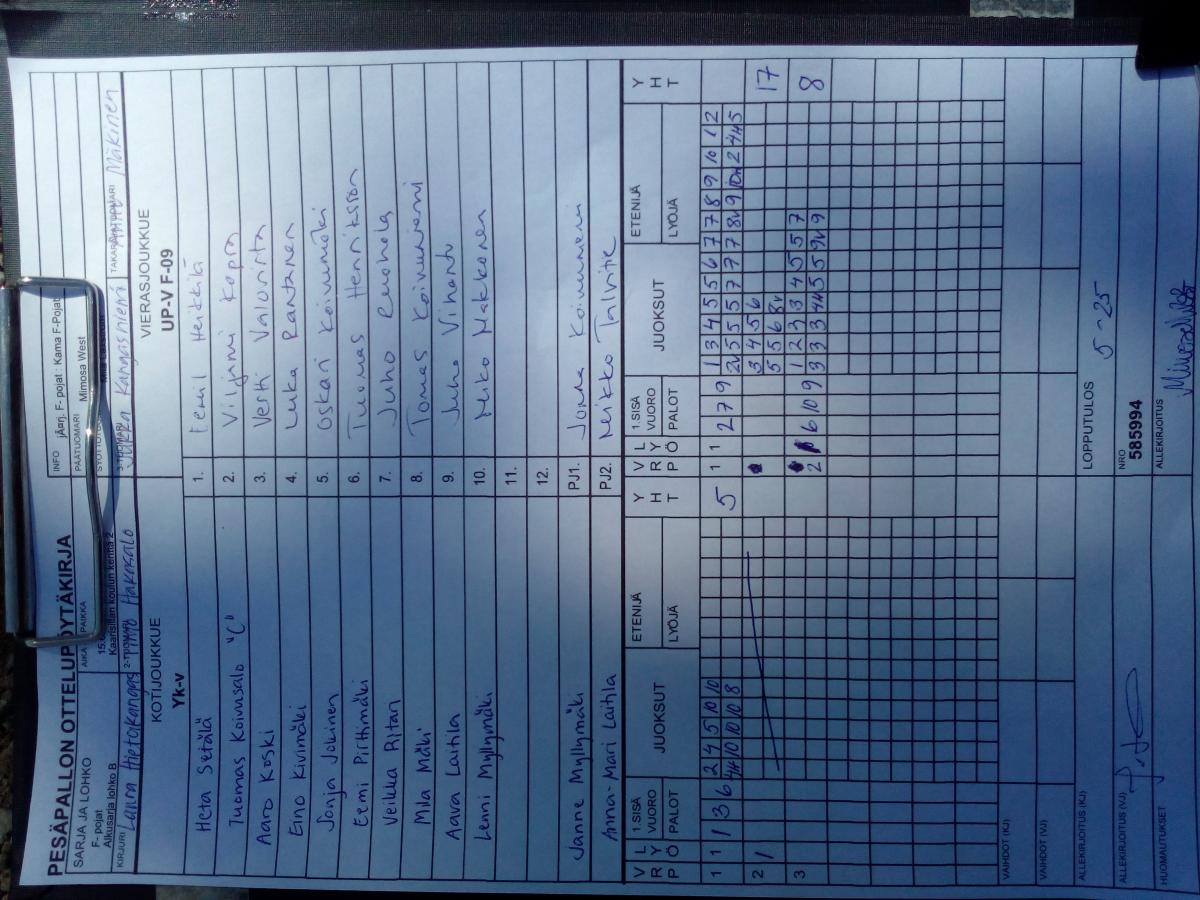 PESÄPALLON OTTELUPÖYTÄKIRJA
SARJA JA LOHKO
F- pojat
Alkusarja lohko B
AIKA PAIKKA
Kaarisillan koulun kenttä 2
INFO
F- pojat : Kama F-Pojat
PÄÄTUOMARI
Mimosa West
KIRJURI Laura Hietakangas
2-TUOMARI Hakosalo
3-TUOMARI Jukka Kangasniemi
TAKARAJATUOMARI Mäkinen
KOTIJOUKKUE
Yk-v
VIERASJOUKKUE
UP-V F-09
Heta Setälä 1. Eemil Heikkilä
Tuomas Koivusalo "C" 2. Viljami Kopra
Aaro Koski 3. Vertti Valovirta
Eino Kivimäki 4. Luka Rantanen
Sonja Jokinen 5. Oskari Koivumäki
Eemi Pirttimäki 6. Tuomas Henriksson
Veikka Ritari 7. Juho
Mila Mäki 8. Tomas Koivuniemi
Aava Laitila 9. Juho Vihanto
Lenni Myllymäki 10. Niko Makkonen
11.
12.
Janne Myllymäki PJ1. Jonna Koivunen
Anna-Mari Laitila PJ2. Mikko Talvitie
V R P L Y Ö 1.SISÄ VUORO PALOT JUOKSUT ETENIJÄ LYÖJÄ Y H T V R P L Y Ö 1.SISÄ VUORO PALOT JUOKSUT ETENIJÄ LYÖJÄ Y H T
1 1 1 3 6 2 4 5 10 10 1 1 2 7 9 1 3 4 5 5 6 7 7 8 9 10 1 2
4H 10 10 10 8 5 2V 5 5 5 7 7 7 8V 9 10H 2 4H 5
2 1 3 4 5 6 17
5 5 6 8V
3 2 6 10 9 1 2 3 3 4 5 5 7 8
3 3 3 4H 5 5 9V 9
VAIHDOT (KJ)
VAIHDOT (VJ)
ALLEKIRJOITUS (KJ)
LOPPUTULOS 5-25
ALLEKIRJOITUS (VJ)
NRO
585994
HUOMAUTUKSET
ALLEKIRJOITUS